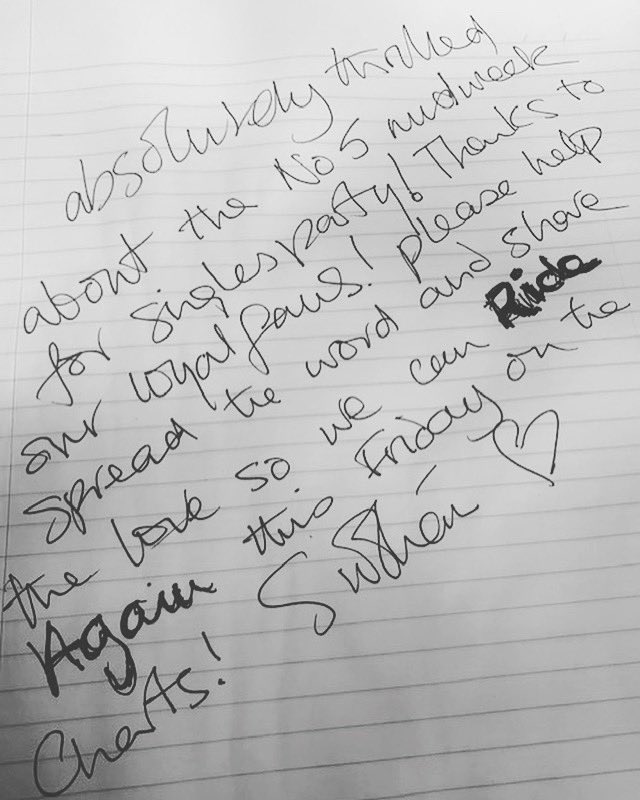 absolutely thrilled
about the No 5 midweek
for singles party! Thanks to
our loyal fans! please help
spread the word and share
the love so we can Ride
Again this Friday on the
Charts! Siobhán